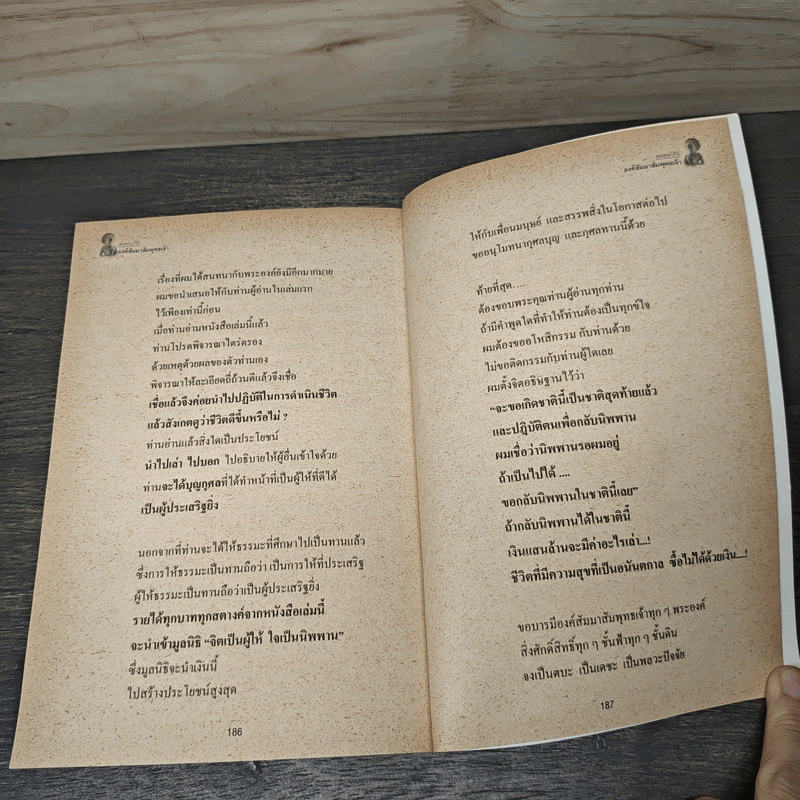 องค์สัมมาสัมพุทธเจ้า
เรื่องที่ผมได้สนทนากับพระองค์ยังมีอีกมากมาย
ผมขอนำเสนอให้กับท่านผู้อ่านในเล่มแรก
ไว้เพียงเท่านี้ก่อน
เมื่อท่านอ่านหนังสือเล่มนี้แล้ว
ท่านโปรดพิจารณาไตร่ตรอง
ด้วยเหตุด้วยผลของตัวท่านเอง
พิจารณาให้ละเอียดถี่ถ้วนดีแล้วจึงเชื่อ
เชื่อแล้วจึงค่อยนำไปปฏิบัติในการดำเนินชีวิต
แล้วสังเกตดูว่าชีวิตดีขึ้นหรือไม่ ?
ท่านอ่านแล้วสิ่งใดเป็นประโยชน์
นำไปเล่า ไปบอก ไปอธิบายให้ผู้อื่นเข้าใจด้วย
ท่านจะได้บุญกุศลที่ได้ทำหน้าที่เป็นผู้ให้ที่ดีได้
เป็นผู้ประเสริฐยิ่ง
นอกจากที่ท่านจะได้ให้ธรรมะที่ศึกษาไปเป็นทานแล้ว
ซึ่งการให้ธรรมะเป็นทานถือว่า เป็นการให้ที่ประเสริฐ
ผู้ให้ธรรมะเป็นทานถือว่าเป็นผู้ประเสริฐยิ่ง
รายได้ทุกบาททุกสตางค์จากหนังสือเล่มนี้
จะนำเข้ามูลนิธิ “จิตเป็นผู้ให้ ใจเป็นนิพพาน”
ซึ่งมูลนิธิจะนำเงินนี้
ไปสร้างประโยชน์สูงสุด
186
องค์สัมมาสัมพุทธเจ้า
ให้กับเพื่อนมนุษย์ และสรรพสิ่งในโอกาสต่อไป
ขออนุโมทนากุศลบุญ และกุศลทานนี้ด้วย
ท้ายที่สุด....
ต้องขอบพระคุณท่านผู้อ่านทุกท่าน
ถ้ามีคำพูดใดที่ทำให้ท่านต้องเป็นทุกข์ใจ
ผมต้องขออโหสิกรรม กับท่านด้วย
ไม่ขอติดกรรมกับท่านผู้ใดเลย
ผมตั้งจิตอธิษฐานไว้ว่า
“จะขอเกิดชาตินี้เป็นชาติสุดท้ายแล้ว
และปฏิบัติตนเพื่อกลับนิพพาน
ผมเชื่อว่านิพพานรอผมอยู่
ถ้าเป็นไปได้ ....
ขอกลับนิพพานในชาตินี้เลย”
ถ้ากลับนิพพานได้ในชาตินี้
เงินแสนล้านจะมีค่าอะไรเล่า...!
ชีวิตที่มีความสุขที่เป็นอนันตกาล ซื้อไม่ได้ด้วยเงิน...!
ขอบารมีองค์สัมมาสัมพุทธเจ้าทุก ๆ พระองค์
สิ่งศักดิ์สิทธิ์ทุก ๆ ชั้นฟ้าทุก ๆ ชั้นดิน
จงเป็นตบะ เป็นเดชะ เป็นพลวะปัจจัย
187